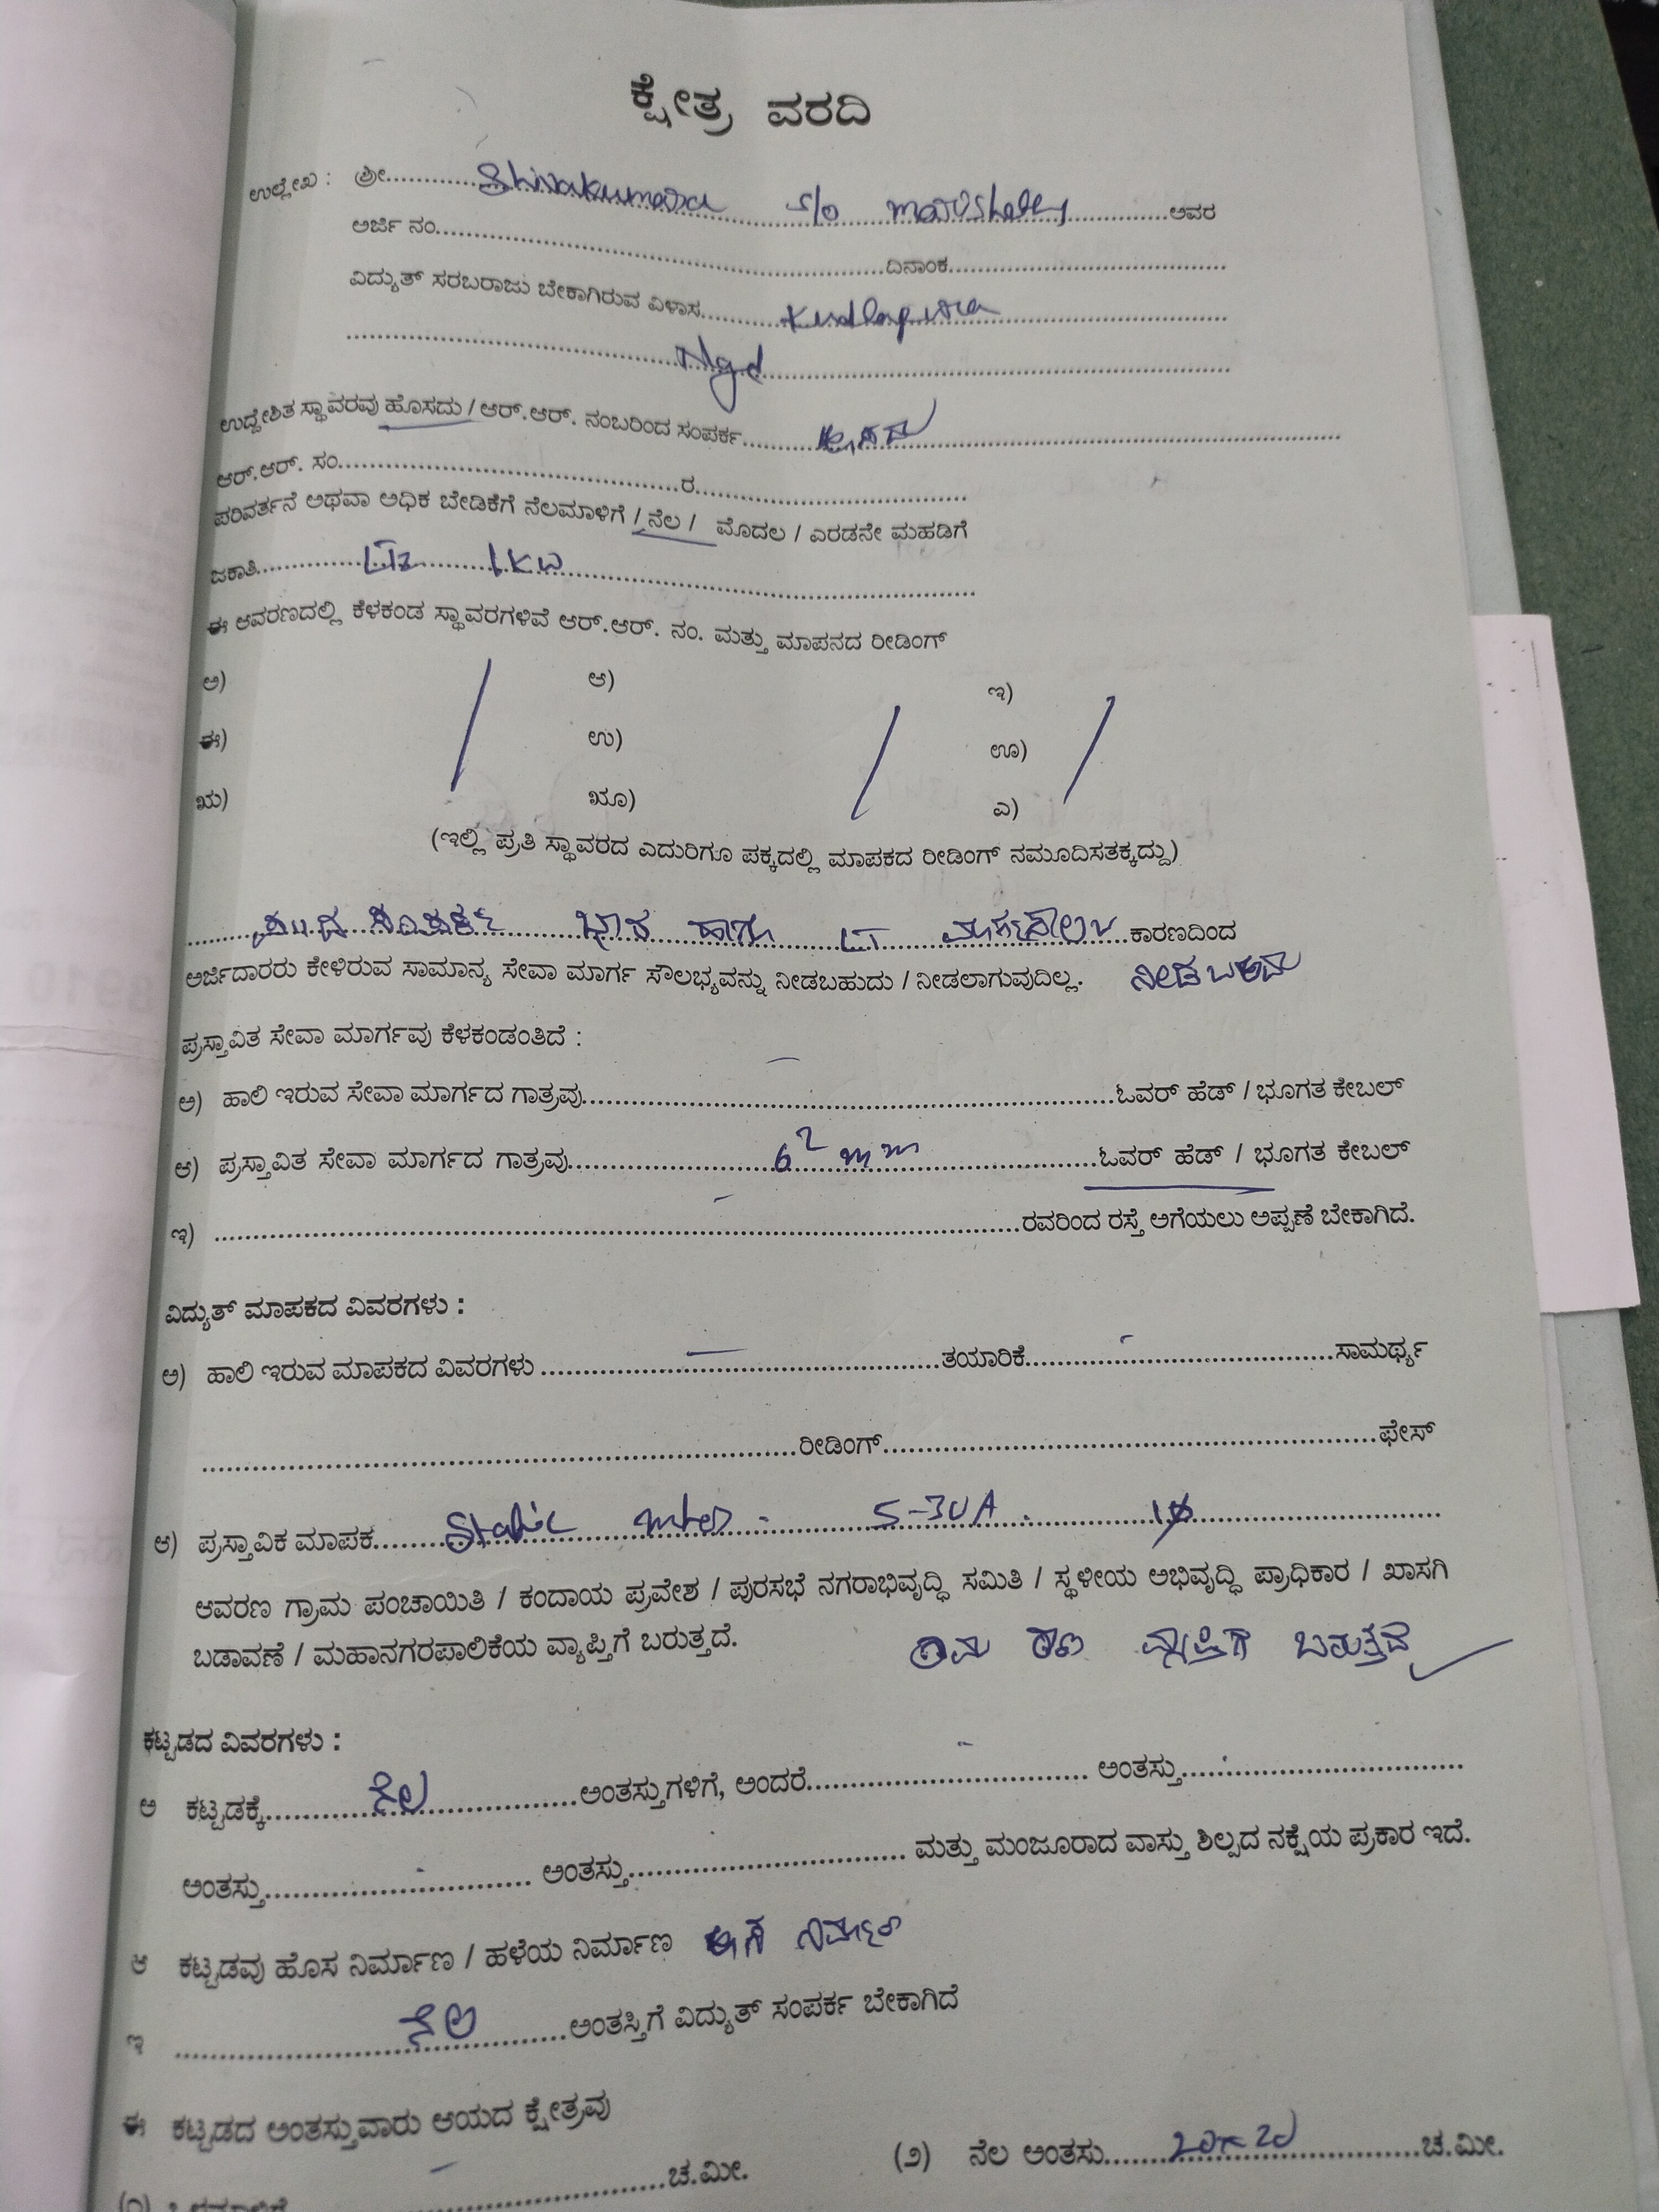 ಕ್ಷೇತ್ರ ವರದಿ
ಉಲ್ಲೇಖ : ಶ್ರೀ............Shivakumara s/o ............ಅವರ
ಅರ್ಜಿ ನಂ............ದಿನಾಂಕ............
ವಿದ್ಯುತ್ ಸರಬರಾಜು ಬೇಕಾಗಿರುವ ವಿಳಾಸ............Kudlapura............
............Ngd............
ಉದ್ದೇಶಿತ ಸ್ಥಾವರವು ಹೊಸದು / ಆರ್.ಆರ್. ನಂಬರಿಂದ ಸಂಪರ್ಕ............ಹೊಸದು............
ಆರ್.ಆರ್. ಸಂ............ರ............
ಪರಿವರ್ತನೆ ಅಥವಾ ಅಧಿಕ ಬೇಡಿಕೆಗೆ ನೆಲಮಾಳಿಗೆ / ನೆಲ / ಮೊದಲ / ಎರಡನೇ ಮಹಡಿಗೆ
ಜಕಾತಿ............LT2 1KW............
ಈ ಆವರಣದಲ್ಲಿ ಕೆಳಕಂಡ ಸ್ಥಾವರಗಳಿವೆ ಆರ್.ಆರ್. ನಂ. ಮತ್ತು ಮಾಪನದ ರೀಡಿಂಗ್
ಅ) ಆ) ಇ)
ಈ) ಉ) ಊ)
ಋ) ಋೂ) ಎ)
(ಇಲ್ಲಿ ಪ್ರತಿ ಸ್ಥಾವರದ ಎದುರಿಗೂ ಪಕ್ಕದಲ್ಲಿ ಮಾಪಕದ ರೀಡಿಂಗ್ ನಮೂದಿಸತಕ್ಕದ್ದು)
............ಹಾಗು LT ............ಕಾರಣದಿಂದ
ಅರ್ಜಿದಾರರು ಕೇಳಿರುವ ಸಾಮಾನ್ಯ ಸೇವಾ ಮಾರ್ಗ ಸೌಲಭ್ಯವನ್ನು ನೀಡಬಹುದು / ನೀಡಲಾಗುವುದಿಲ್ಲ. ನೀಡಬಹುದು
ಪ್ರಸ್ತಾವಿತ ಸೇವಾ ಮಾರ್ಗವು ಕೆಳಕಂಡಂತಿದೆ :
ಅ) ಹಾಲಿ ಇರುವ ಸೇವಾ ಮಾರ್ಗದ ಗಾತ್ರವು............ಓವರ್ ಹೆಡ್ / ಭೂಗತ ಕೇಬಲ್
ಆ) ಪ್ರಸ್ತಾವಿತ ಸೇವಾ ಮಾರ್ಗದ ಗಾತ್ರವು............6² mm............ಓವರ್ ಹೆಡ್ / ಭೂಗತ ಕೇಬಲ್
ಇ) ............ರವರಿಂದ ರಸ್ತೆ ಅಗೆಯಲು ಅಪ್ಪಣೆ ಬೇಕಾಗಿದೆ.
ವಿದ್ಯುತ್ ಮಾಪಕದ ವಿವರಗಳು :
ಅ) ಹಾಲಿ ಇರುವ ಮಾಪಕದ ವಿವರಗಳು ............ತಯಾರಿಕೆ............ಸಾಮರ್ಥ್ಯ
............ರೀಡಿಂಗ್............ಫೇಸ್
ಆ) ಪ್ರಸ್ತಾವಿಕ ಮಾಪಕ............Static meter. 5-30A. 1φ............
ಆವರಣ ಗ್ರಾಮ ಪಂಚಾಯಿತಿ / ಕಂದಾಯ ಪ್ರವೇಶ / ಪುರಸಭೆ ನಗರಾಭಿವೃದ್ಧಿ ಸಮಿತಿ / ಸ್ಥಳೀಯ ಅಭಿವೃದ್ಧಿ ಪ್ರಾಧಿಕಾರ / ಖಾಸಗಿ
ಬಡಾವಣೆ / ಮಹಾನಗರಪಾಲಿಕೆಯ ವ್ಯಾಪ್ತಿಗೆ ಬರುತ್ತದೆ. ವ್ಯಾಪ್ತಿಗೆ ಬರುತ್ತದೆ
ಕಟ್ಟಡದ ವಿವರಗಳು :
ಅ ಕಟ್ಟಡಕ್ಕೆ............ನೆಲ............ಅಂತಸ್ತುಗಳಿಗೆ, ಅಂದರೆ............ ಅಂತಸ್ತು............
ಅಂತಸ್ತು............ ಅಂತಸ್ತು............ ಮತ್ತು ಮಂಜೂರಾದ ವಾಸ್ತು ಶಿಲ್ಪದ ನಕ್ಷೆಯ ಪ್ರಕಾರ ಇದೆ.
ಆ ಕಟ್ಟಡವು ಹೊಸ ನಿರ್ಮಾಣ / ಹಳೆಯ ನಿರ್ಮಾಣ ಹೊಸ ನಿರ್ಮಾಣ
ಇ ............ನೆಲ............ಅಂತಸ್ತಿಗೆ ವಿದ್ಯುತ್ ಸಂಪರ್ಕ ಬೇಕಾಗಿದೆ
ಈ ಕಟ್ಟಡದ ಅಂತಸ್ತುವಾರು ಆಯದ ಕ್ಷೇತ್ರವು
............ಚ.ಮೀ. (೨) ನೆಲ ಅಂತಸು............20x20............ಚ.ಮೀ.